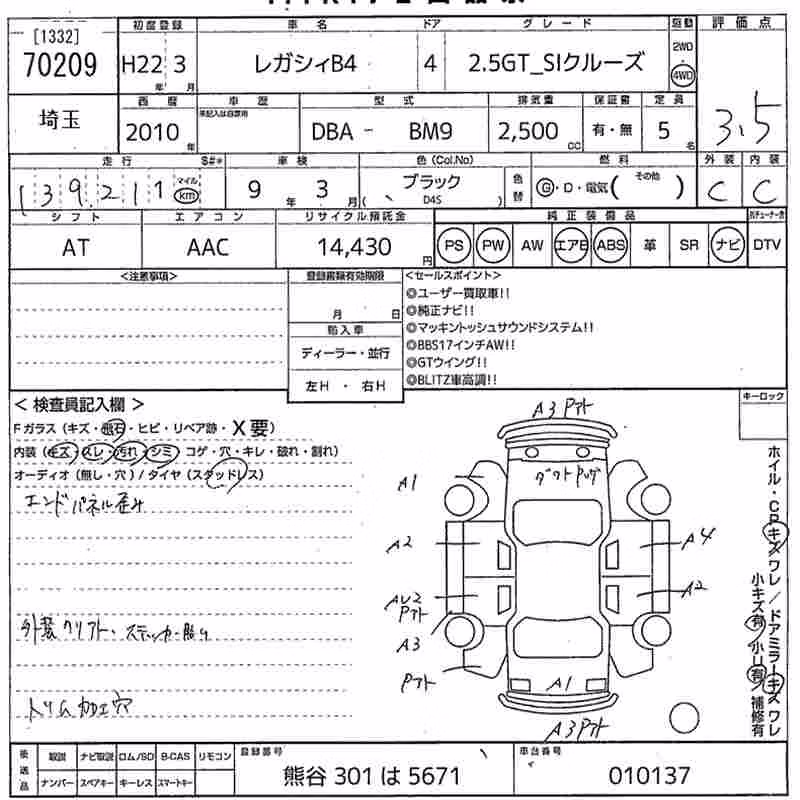 [1332] 初度登録 車名 ドア グレード 駆動 評価点
70209 H22 3 レガシィB4 4 2.5GT_SIクルーズ 2WD
年 月 4WD
埼玉 西暦 車歴 型式 排気量 保証書 定員 3.5
未記入は自家用
2010年 DBA - BM9 2,500cc 有・無 5名
走行 S#* 車検 色(Col.No) 燃料 外装 内装
139,211 マイル km 9年 3月 ブラック ( D4S ) 色替 G・D・電気 ( その他 ) C C
シフト エアコン リサイクル預託金 純正装備品
AT AAC 14,430円 PS PW AW エアB ABS 革 SR ナビ DTV
<注意事項> 登録書類有効期限 <セールスポイント>
月 日
◎ユーザー買取車!!
◎純正ナビ!!
輸入車
◎マッキントッシュサウンドシステム!!
ディーラー・並行
◎BBS17インチAW!!
◎GTウイング!!
左H ・ 右H
◎BLITZ車高調!!
<検査員記入欄> キーロック
Fガラス (キズ・飛石・ヒビ・リペア跡・X要)
内装 (キズ・スレ・汚れ・シミ・コゲ・穴・キレ・破れ・割れ)
オーディオ (無し・穴) / タイヤ (スタッドレス)
エンドパネル歪み
外装クリアハゲ・ステッカー貼り
トリム加工穴
A3 Pアト
A1
A2
A4
A2
A3
Pアト
A1
A3 Pアト
ホイル・CP キズ ワレ / ドアミラー キズ ワレ
小キズ有 / 小凹有 / 補修有
後送品 取説 ナビ取説 ロム/SD B-CAS リモコン 登録番号 車台番号
ナンバー スペアキー キーレス スマートキー 熊谷 301 は 5671 010137